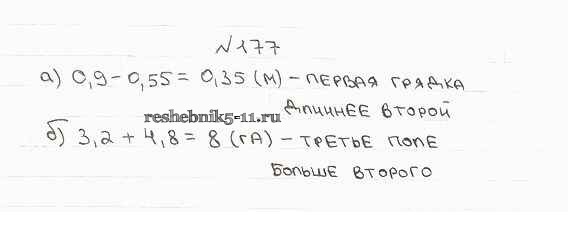 №177
а) 0,9 - 0,55 = 0,35 (м) - ПЕРВАЯ ГРЯДКА
ДЛИННЕЕ ВТОРОЙ
reshebnik5-11.ru
б) 3,2 + 4,8 = 8 (ГА) - ТРЕТЬЕ ПОЛЕ
БОЛЬШЕ ВТОРОГО